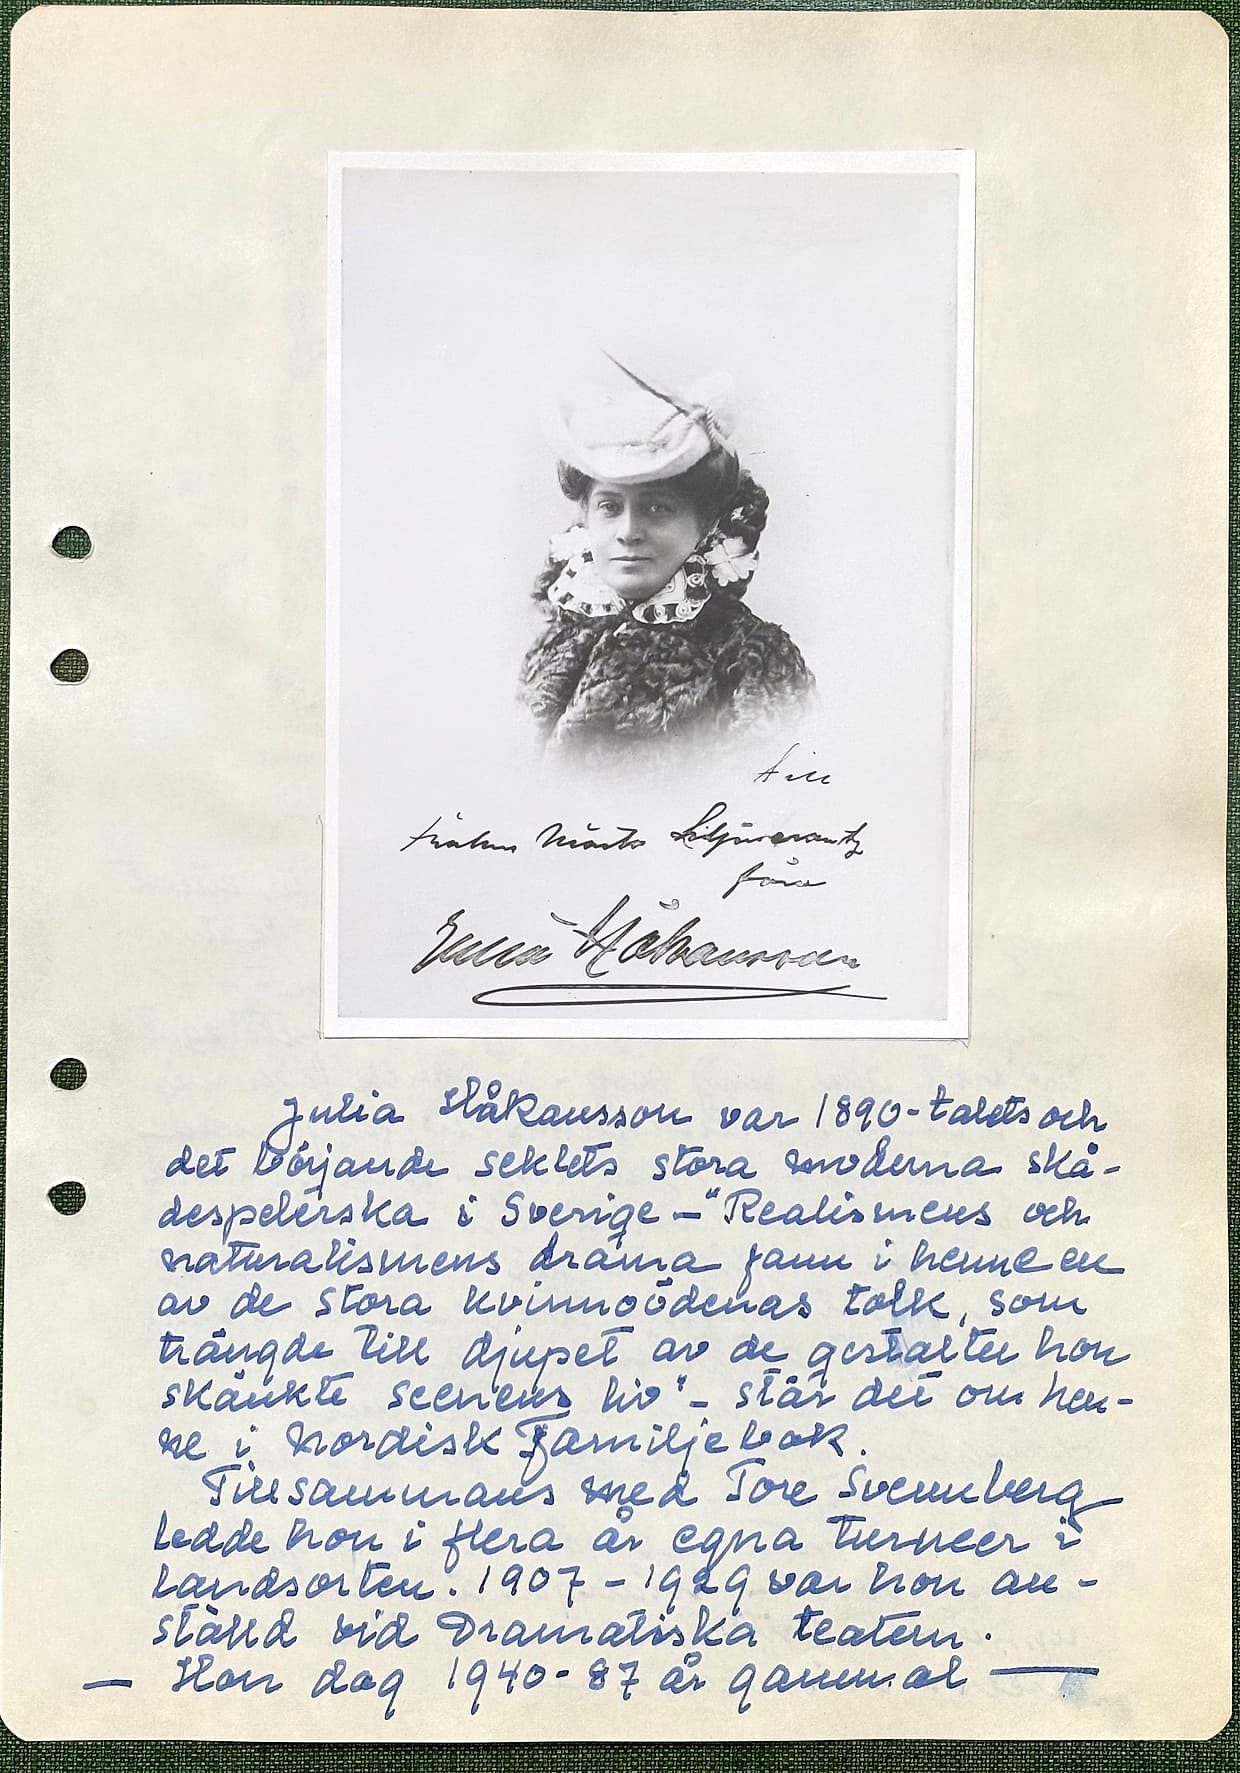 till
fröken Märta Liljencrantz
från
Julia Håkansson
Julia Håkansson var 1890-talets och
det börjande seklets stora moderna skå-
despelerska i Sverige – "Realismens och
naturalismens drama fann i henne en
av de stora kvinnoödenas tolk, som
trängde till djupet av de gestalter hon
skänkte scenens liv" – står det om hen-
ne i Nordisk Familjebok.
Tillsammans med Tore Svennberg
ledde hon i flera år egna turneer i
landsorten. 1907 – 1929 var hon an-
ställd vid Dramatiska teatern.
— Hon dog 1940 - 87 år gammal —